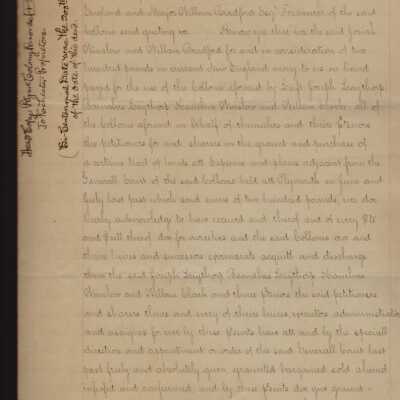 England and Major William Bradford Esqr Treasurer of the said
Collonie send greeting &c Know yee that wee the said Josiah
Winslow and William Bradford for and in consideration of two
hundred pounds in currant New England money to us in hand
payed for the use of the Collonie aforesd by Leift Joseph Laythorp
Barnabas Laythorp Kenelme Winslow and William Clarke all of
the Collonie aforesd in behalf of themselves and those
the petitioners for and sharers in the grant and purchase of
a certaine tract of lands att Sepecan and places adjacent from the
Generall Court of the said Collonie held att Plymouth in June and
July last past which said sume of two hundred pounds, wee doe
hearby acknowledge to have receved and therof and of every
and parcell therof doe for ourselves and the said Collonie our and
theire heires and successors exonerate acquitt and discharge
them the said Joseph Laythorp Barnabas Laythorp Kanelme
Winslow and William Clark and those the said petitioners
and sharers theire and every of theire heires, executors administrators
and assignes for ever by these presents have att and by the speciall
direction and appointment or order of the said Generall Court last
past freely and absolutely given, granted bargained sold aliened
infeofed and confeirmed and by these presents doe give grant
Deed Copy Plym. Colony Governmt
To
To Rochester Proprietors
(Bi-Centennial Date was the 200th
of the date of this deed.